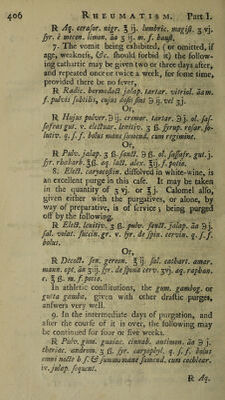 406 RHEUMATISM. Part I.
R Aq. cerasor. nigr. ℥ ij. lumbric. magist. 3 vj.
syr. è mecon. limon. āa ʒ ij. m. f. haust.
7. The vomit being exhibited, (or omitted, if
age, weakness, &c. should forbid it) the follow-
ing cathartic may be given two or three days after,
and repeated once or twice a week, for some time,
provided there be no fever.
R Radic. hermodact. jalap. tartar. vitriol. āam.
f. pulvis subtilis, cujus dosis sint ℈ ij. vel ʒ j.
Or,
R Hujus pulver. ℈ ij. cremor. tartar. ℈ j. ol. sas-
safras gut. v. electuar. lenitiv. ʒ ß. syrup. rosar. so-
lutiv. q. s. f. bolus mane sumend. cum regimine.
Or,
R Pulv. jalap. ʒ ß. sanct. ℈ ß. ol. sassafr. gut. j.
syr. rhabarb. ℥ ß. aq. lact. alex. ℥ ij. f. potio.
8. Elect. caryocostin. dissolved in white-wine, is
an excellent purge in this case. It may be taken
in the quantity of ʒ vj. or ℥ j. Calomel also,
given either with the purgatives, or alone, by
way of preparative, is of service; being purged
off by the following.
R Elect. lenitiv. ʒ ß. pulv. sanct. jalap. āa ℈ j.
sal. volat. succin. gr. v. syr. de spin. cervin. q. s. f.
bolus.
Or,
R Decoct. sen. gereon. ℥ ij. sal. cathart. amar.
mann. opt. āa ʒ ij. syr. de spina cerv. ʒ vj. aq. raphan.
c. ℥ ß. m. f. potio.
In athletic constitutions, the gum. gambog. or
gutta gamba, given with other drastic purges,
answers very well.
9. In the intermediate days of purgation, and
after the course of it is over, the following may
be continued for four or five weeks.
R Pulv. gum. guaiac. cinnab. antimon. āa ℈ j.
theriac. androm. ʒ ß. syr. caryophyl. q. s. f. bolus
omni nocte h. s. & summo mane sumend. cum cochlear.
iv. julap. sequent.
R Aq.